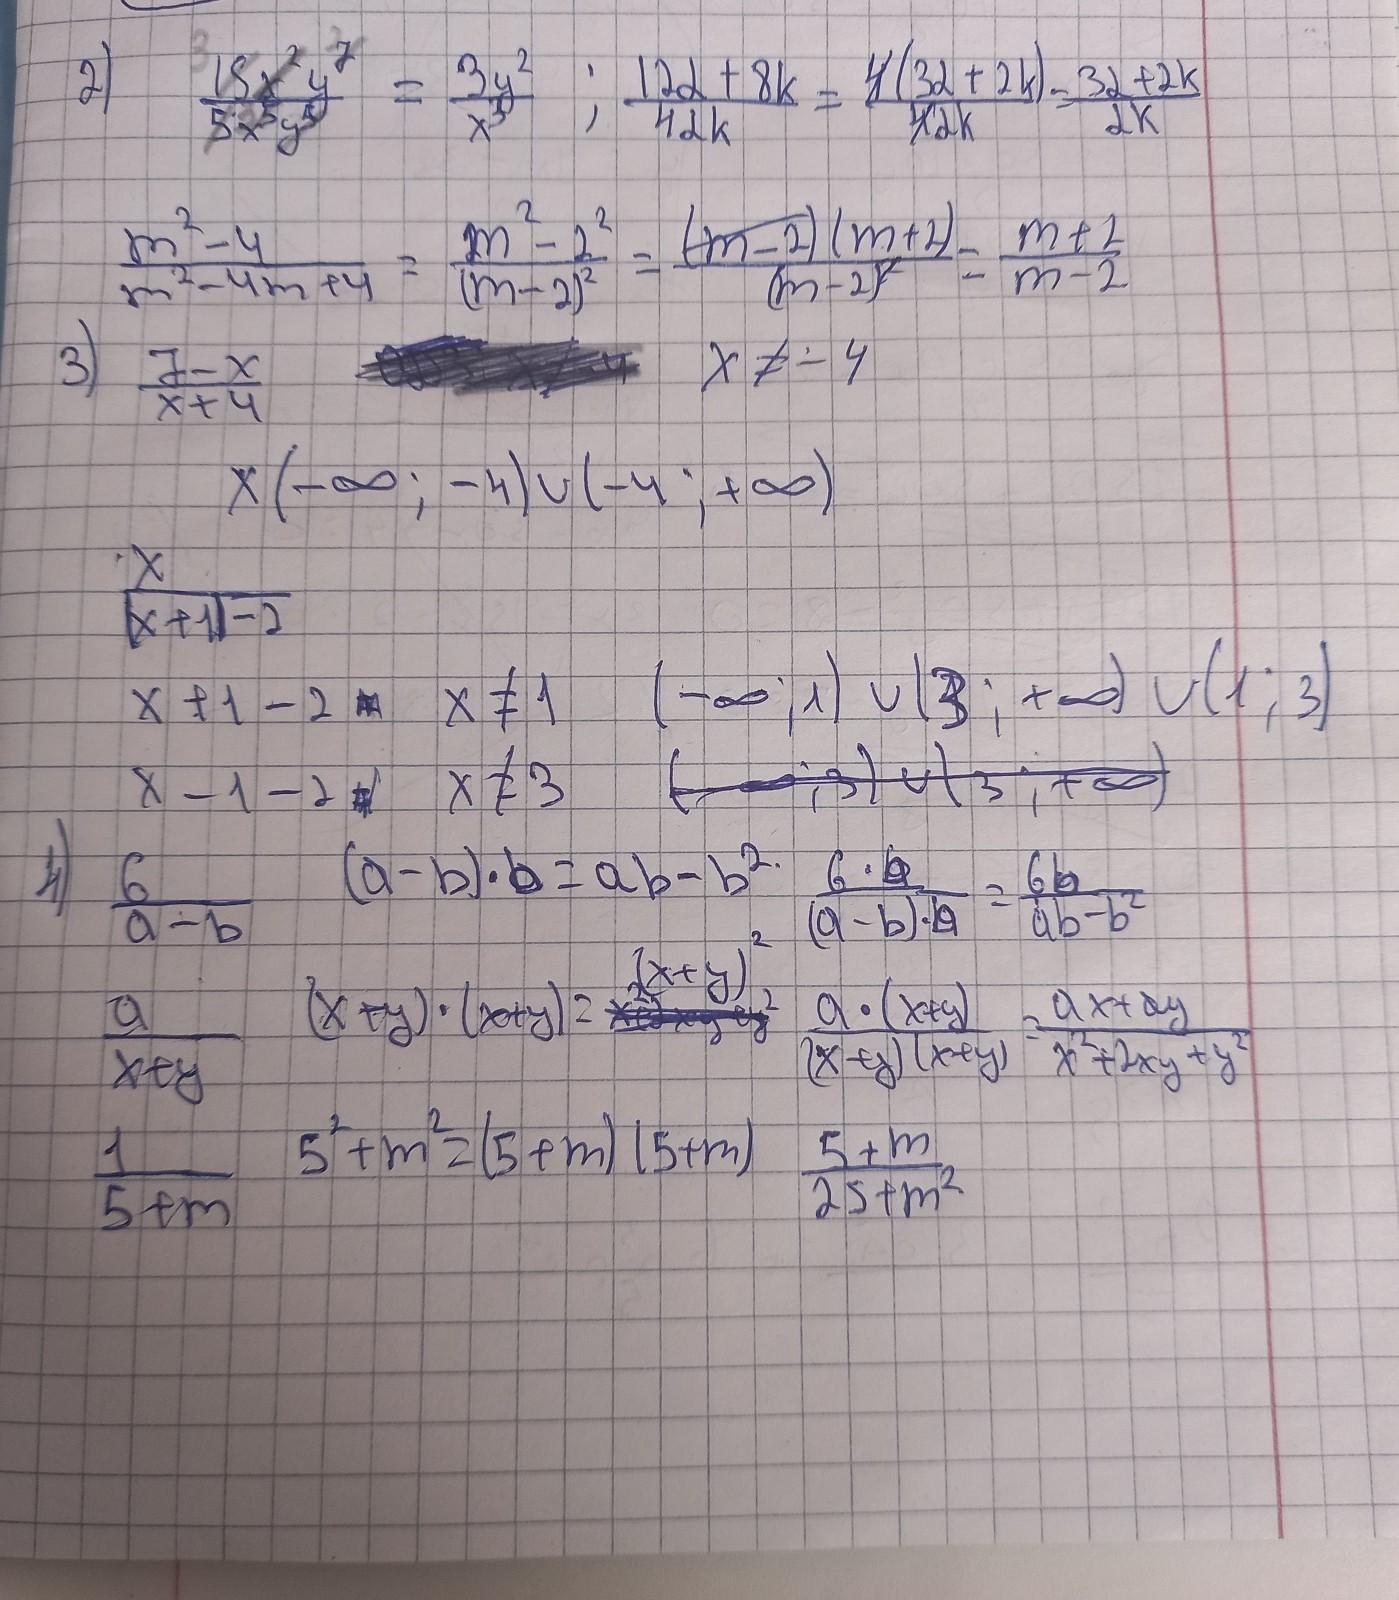 2) 15x²y⁷/5x⁵y⁵ = 3y²/x³ ; 12d + 8k/4dk = 4(3d + 2k)/4dk = 3d + 2k/dk
m² - 4/m² - 4m + 4 = m² - 2²/(m - 2)² = (m - 2)(m + 2)/(m - 2)² = m + 2/m - 2
3) 7 - x/x + 4 x ≠ - 4
x (-∞; -4) ∪ (-4; +∞)
x/|x + 1| - 2
x + 1 - 2 x ≠ 1 (-∞; 1) ∪ (3; +∞) ∪ (1; 3)
x - 1 - 2 x ≠ 3
4) 6/a - b (a - b) · b = ab - b² 6 · b/(a - b) · b = 6b/ab - b²
a/x + y (x + y) · (x + y) = (x + y)² a · (x + y)/(x + y)(x + y) = ax + ay/x² + 2xy + y²
1/5 + m 5² + m² = (5 + m)(5 + m) 5 + m/25 + m²